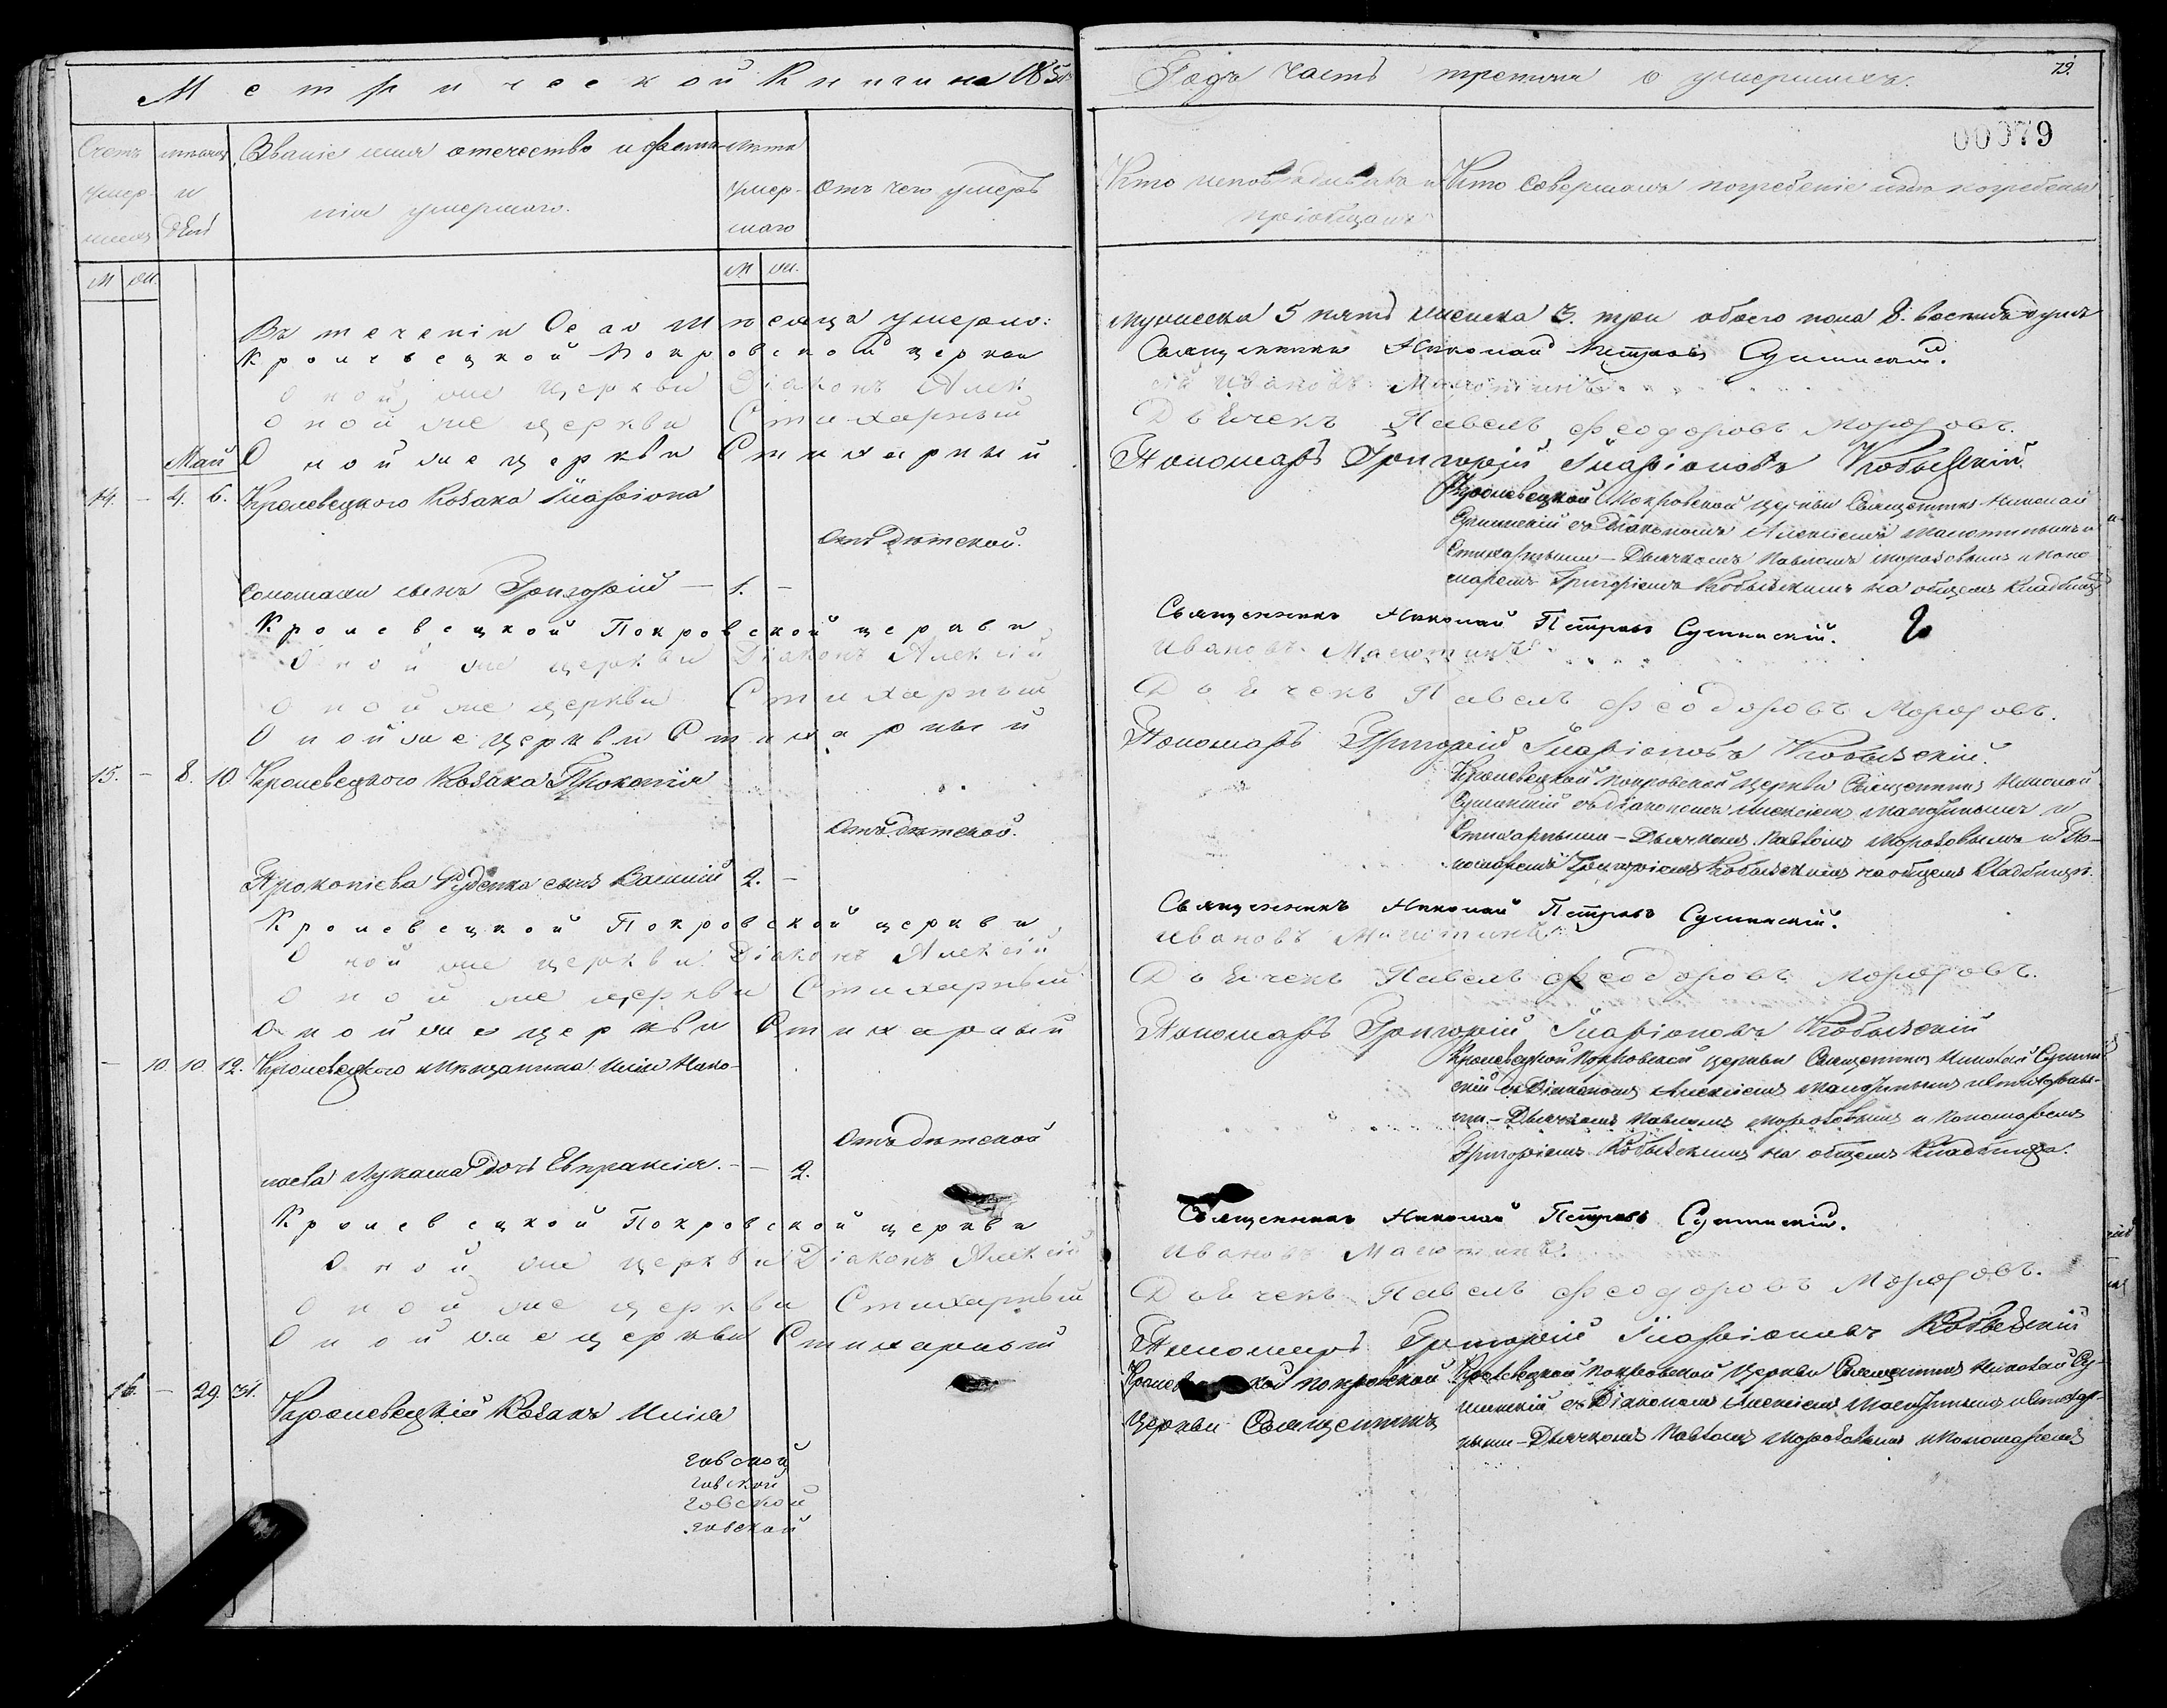 Метрической Книги на 185
Годъ часть третья о умершихъ.
79.
00079
Счетъ умер-шихъ
мѣсяцъ и день
Званіе имя отечество и фами-лія умершаго.
Лѣта умер-шаго
Отъ чего умеръ
Кто исповѣдывалъ и пріобщалъ
Кто совершалъ погребеніе и гдѣ погребены
М Ж.
М. Ж.
Въ теченіи Сего Мѣсяца умерло: мужеска 5 пять женска 3. три обоего пола 8. восемь душъ
Кролевецкой Покровской церкви Священникъ Николай Петровъ Сушинскій.
Оной же церкви Діаконъ Алексѣй Ивановъ Малютинъ
Оной же церкви Стихарный Дьячекъ Павелъ Феодоровъ Морозовъ.
Оной же церкви Стихарный Пономарь Григорій Иларіоновъ Кобызскій.
Май
14. - 4. 6. Кролевецкого Козака Иларіона
Соломахи сынъ Григорій - 1. -
Отъ дѣтской.
Кролевецкой Покровской церкви Священникъ Николай
Сушинскій съ Діакономъ Алексіемъ Малютинымъ и
Стихарными - Дьячкомъ Павломъ Морозовымъ и Поно
маремъ Григоріемъ Кобызскимъ на общемъ Кладбищѣ
Кролевецкой Покровской церкви Священникъ Николай Петровъ Сушинскій.
Оной же церкви Діаконъ Алексій Ивановъ Малютинъ
Оной же церкви Стихарный Дьячекъ Павелъ Феодоровъ Морозовъ.
Оной же церкви Стихарный Пономарь Григорій Иларіоновъ Кобызскій.
15. - 8. 10 Кролевецкого Козака Прокопія
Прокопіева Руденка сынъ Василій 2. -
Отъ дѣтской.
Кролевецкой Покровской Церкви Священникъ Николай
Сушинскій съ Діакономъ Алексіемъ Малютинымъ и
Стихарными - Дьячкомъ Павломъ Морозовымъ и По-
номаремъ Григоріемъ Кобызскимъ на общемъ Кладбищѣ.
Кролевецкой Покровской церкви Священникъ Николай Петровъ Сушинскій.
Оной же церкви Діаконъ Алексій Ивановъ Малютинъ
Оной же церкви Стихарный Дьячекъ Павелъ Феодоровъ Морозовъ.
Оной же церкви Стихарный Пономарь Григорій Иларіоновъ Кобызскій
- 10. 10. 12. Кролевецкого Мѣщанина Иліи Нико-
лаева Лукаша Дочь Евпраксія. - - 2.
Отъ дѣтской
Кролевецкой Покровской церкви Священникъ Николай Сушин
скій съ Діакономъ Алексіемъ Малютинымъ и Стихарны-
ми - Дьячкомъ Павломъ Морозовымъ и Пономаремъ
Григоріемъ Кобызскимъ на общемъ Кладбищѣ.
Кролевецкой Покровской церкви Священникъ Николай Петровъ Сушинскій.
Оной же церкви Діаконъ Алексій Ивановъ Малютинъ.
Оной же церкви Стихарный Дьячекъ Павелъ Феодоровъ Морозовъ.
Оной же церкви Стихарный Пономарь Григорій Иларіоновъ Кобызскій
16. - 29. 31. Кролевецкій Козакъ Илія
Кролев кой Покровской
Церкви Священникъ
Кролевецкой Покровской Церкви Священникъ Николай Су-
шинскій съ Діакономъ Алексіемъ Малютинымъ и Стихар-
ными - Дьячкомъ Павломъ Морозовымъ и Пономаремъ